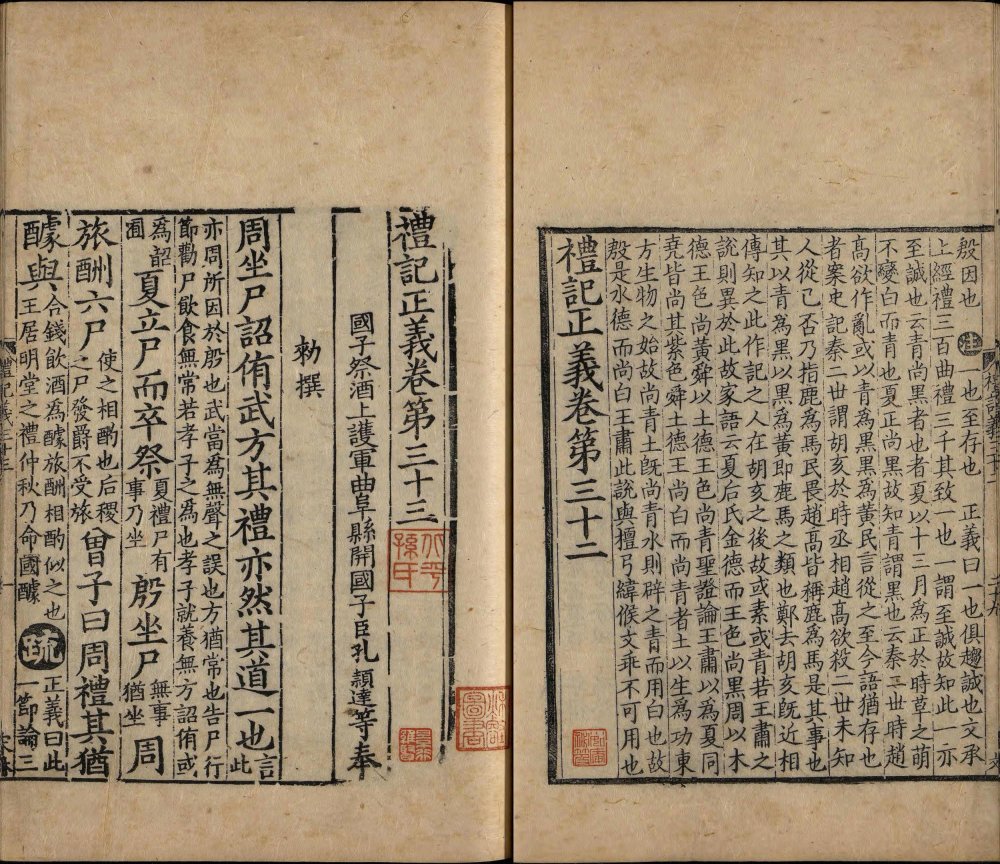 殷因也 注 一也至存也 正義曰一也俱趨誠也文承
上經禮三百曲禮三千其致一也一謂至誠故知此一亦
至誠也云青尚黑者也者夏以十三月為正於時草之萌
不變白而青也夏正尚黑故知青謂黑也云秦二世時趙
髙欲作亂或以青為黑黑為黃民言從之至今語猶存也
者案史記秦二世謂胡亥於時丞相趙髙欲殺二世未知
人從己否乃指鹿為馬民畏趙髙皆稱鹿為馬是其事也
其以青爲黑以黑爲黃即鹿馬之類也鄭去胡亥旣近相
傳知之此作記之人在胡亥之後故或素或青若王肅之
說則異於此故家語云夏后氏金德而王色尚黑周以木
德王色尚黃舜以土德王色尚青聖證論王肅以爲夏同
堯皆尚其紫色舜土德王尚白而尚青者土以生爲功東
方生物之始故尚青土旣尚青水則辟之青而用白也故
殷是水德而尚白王肅此說與檀弓緯候文乖不可用也
禮記正義卷第三十二
禮記正義卷第三十三
北平孫氏
國子祭酒上護軍曲阜縣開國子臣孔穎達等奉
勑撰
周坐尸詔侑武方其禮亦然其道一也言此
亦周所因於殷也武當爲無聲之誤也方猶常也告尸行
節勸尸飲食無常若孝子之為也孝子就養無方詔侑或
為詔囿 夏立尸而卒祭夏禮尸有事乃坐 殷坐尸無事猶坐 周
旅酬六尸使之相酌也后稷之尸發爵不受旅 曾子曰周禮其猶
醵與合錢飲酒為醵旅酬相酌似之也王居明堂之禮仲秋乃命國醵 疏 正義曰此一節論三